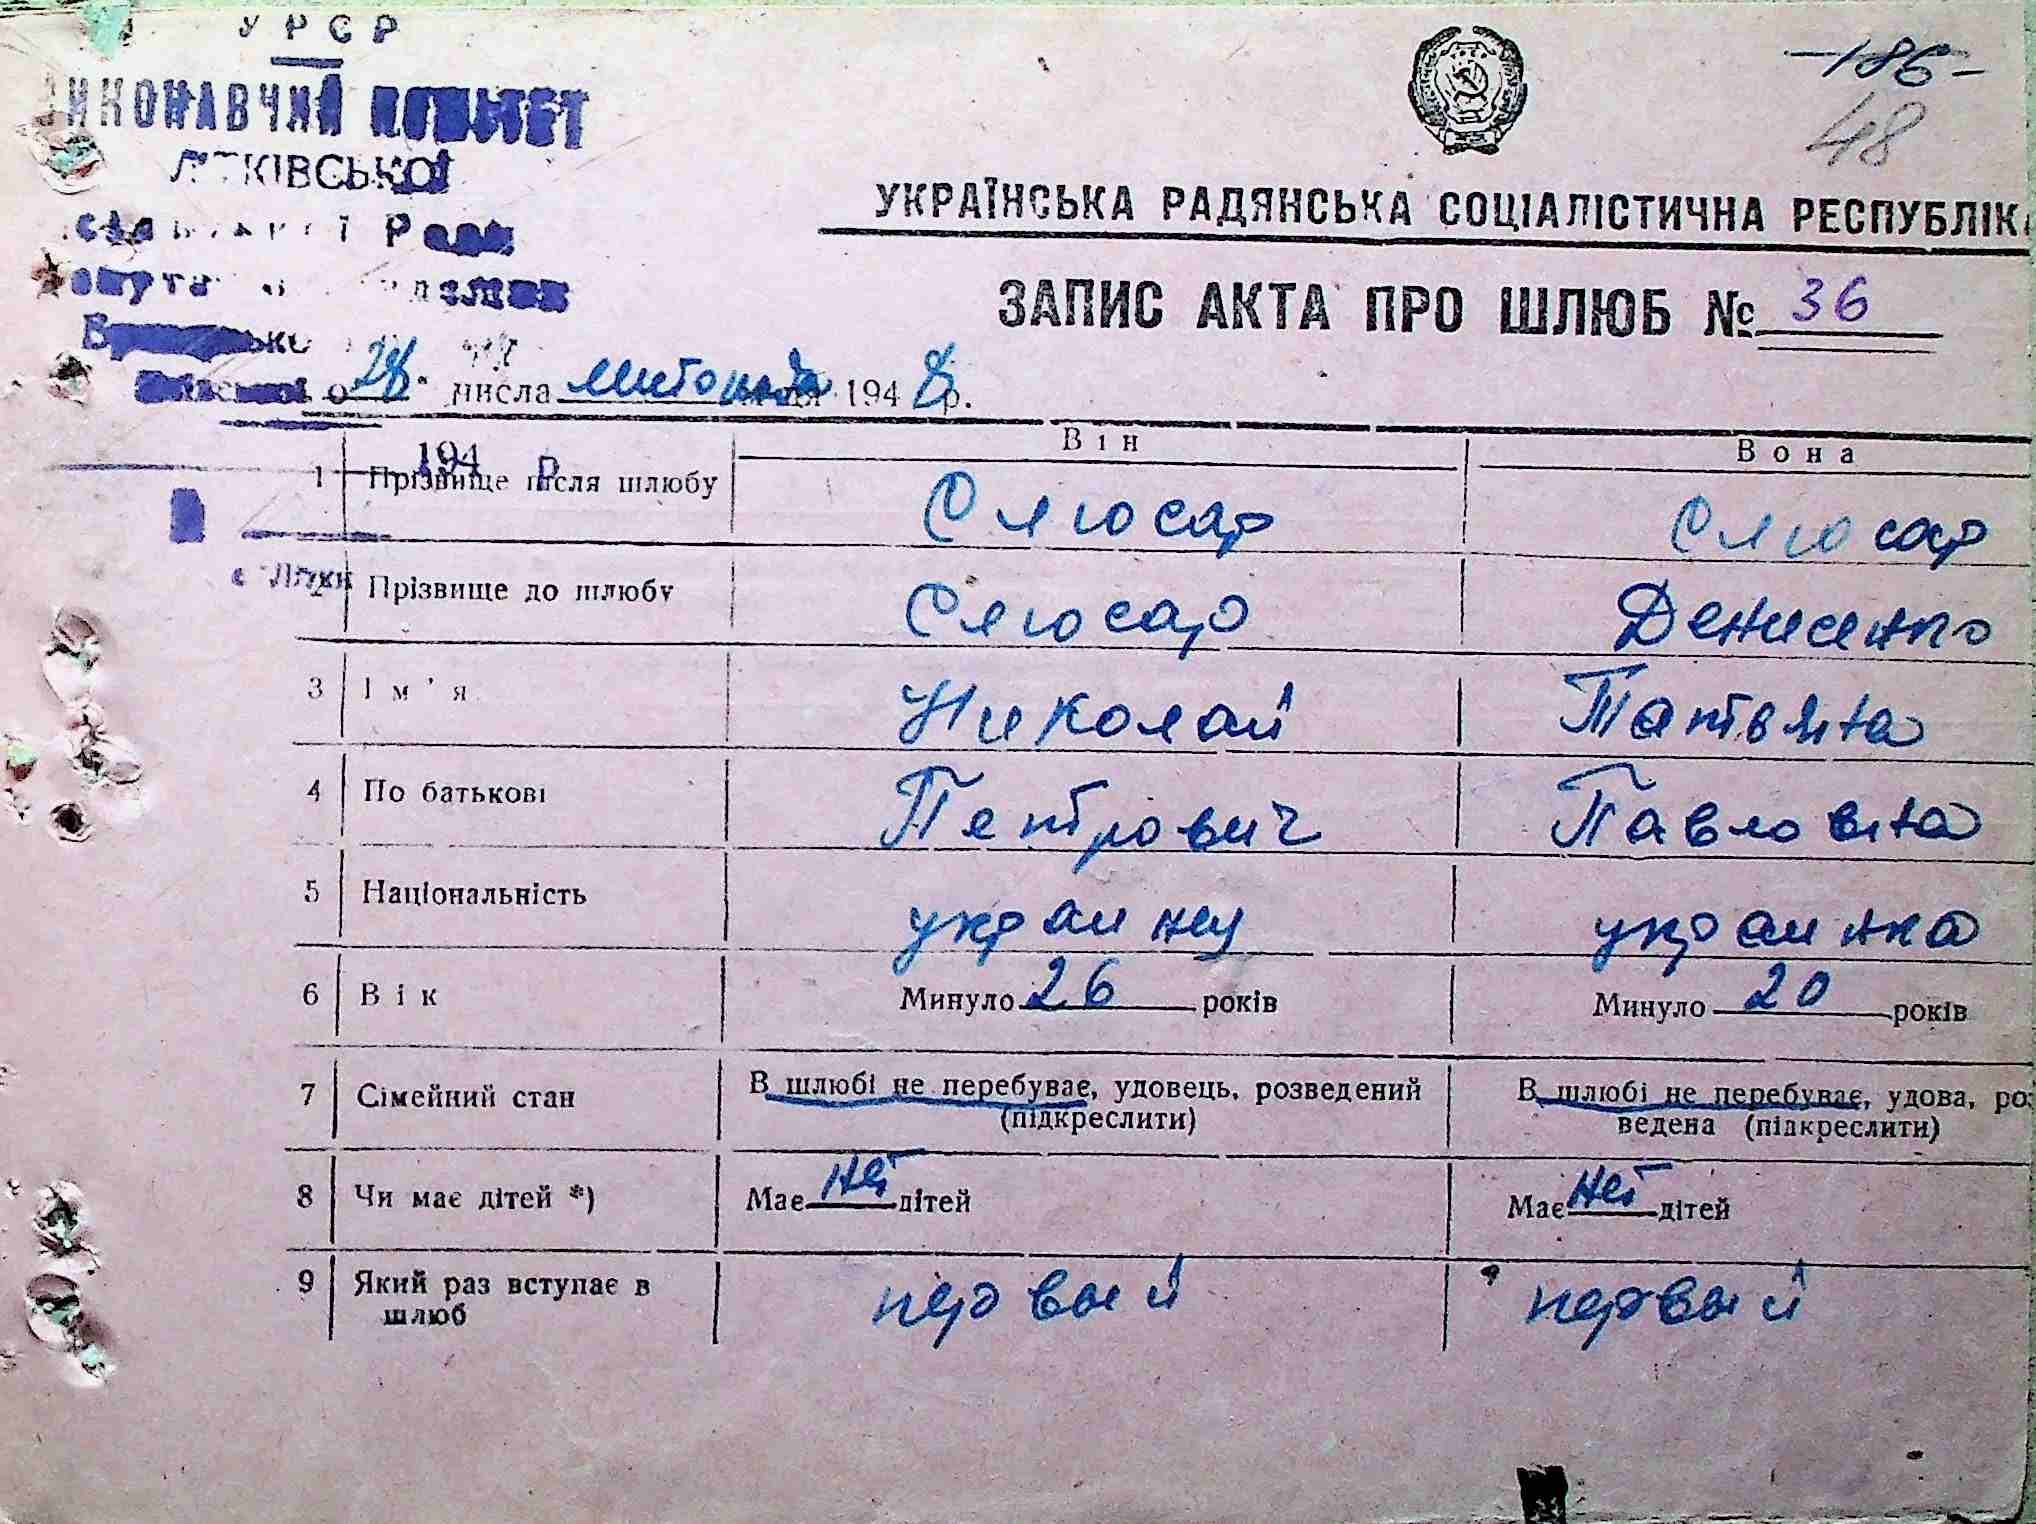 УРСР
ВИКОНАВЧИЙ КОМІТЕТ
ЛІТКІВСЬКОЇ
сільської Ради
-186-
48
УКРАЇНСЬКА РАДЯНСЬКА СОЦІАЛІСТИЧНА РЕСПУБЛІКА
ЗАПИС АКТА ПРО ШЛЮБ № 36
28 числа листопада 1948 р.
194 р.
Він Вона
1 Прізвище після шлюбу Слюсар Слюсар
2 Прізвище до шлюбу Слюсар Денисенко
3 Ім'я Николай Татьяна
4 По батькові Петрович Павловна
5 Національність украинец украинка
6 Вік Минуло 26 років Минуло 20 років
7 Сімейний стан В шлюбі не перебуває, удовець, розведений (підкреслити) В шлюбі не перебуває, удова, роз
ведена (підкреслити)
8 Чи має дітей *) Має нет дітей Має нет дітей
9 Який раз вступає в шлюб первый первый